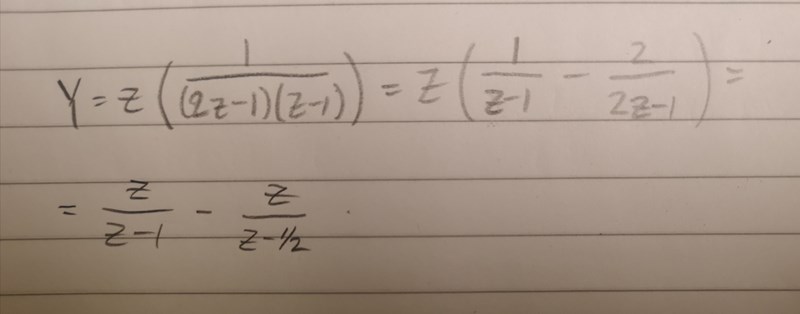 Y = z ( 1 / (2z-1)(z-1) ) = z ( 1 / z-1 - 2 / 2z-1 ) =
= z / z-1 - z / z-1/2